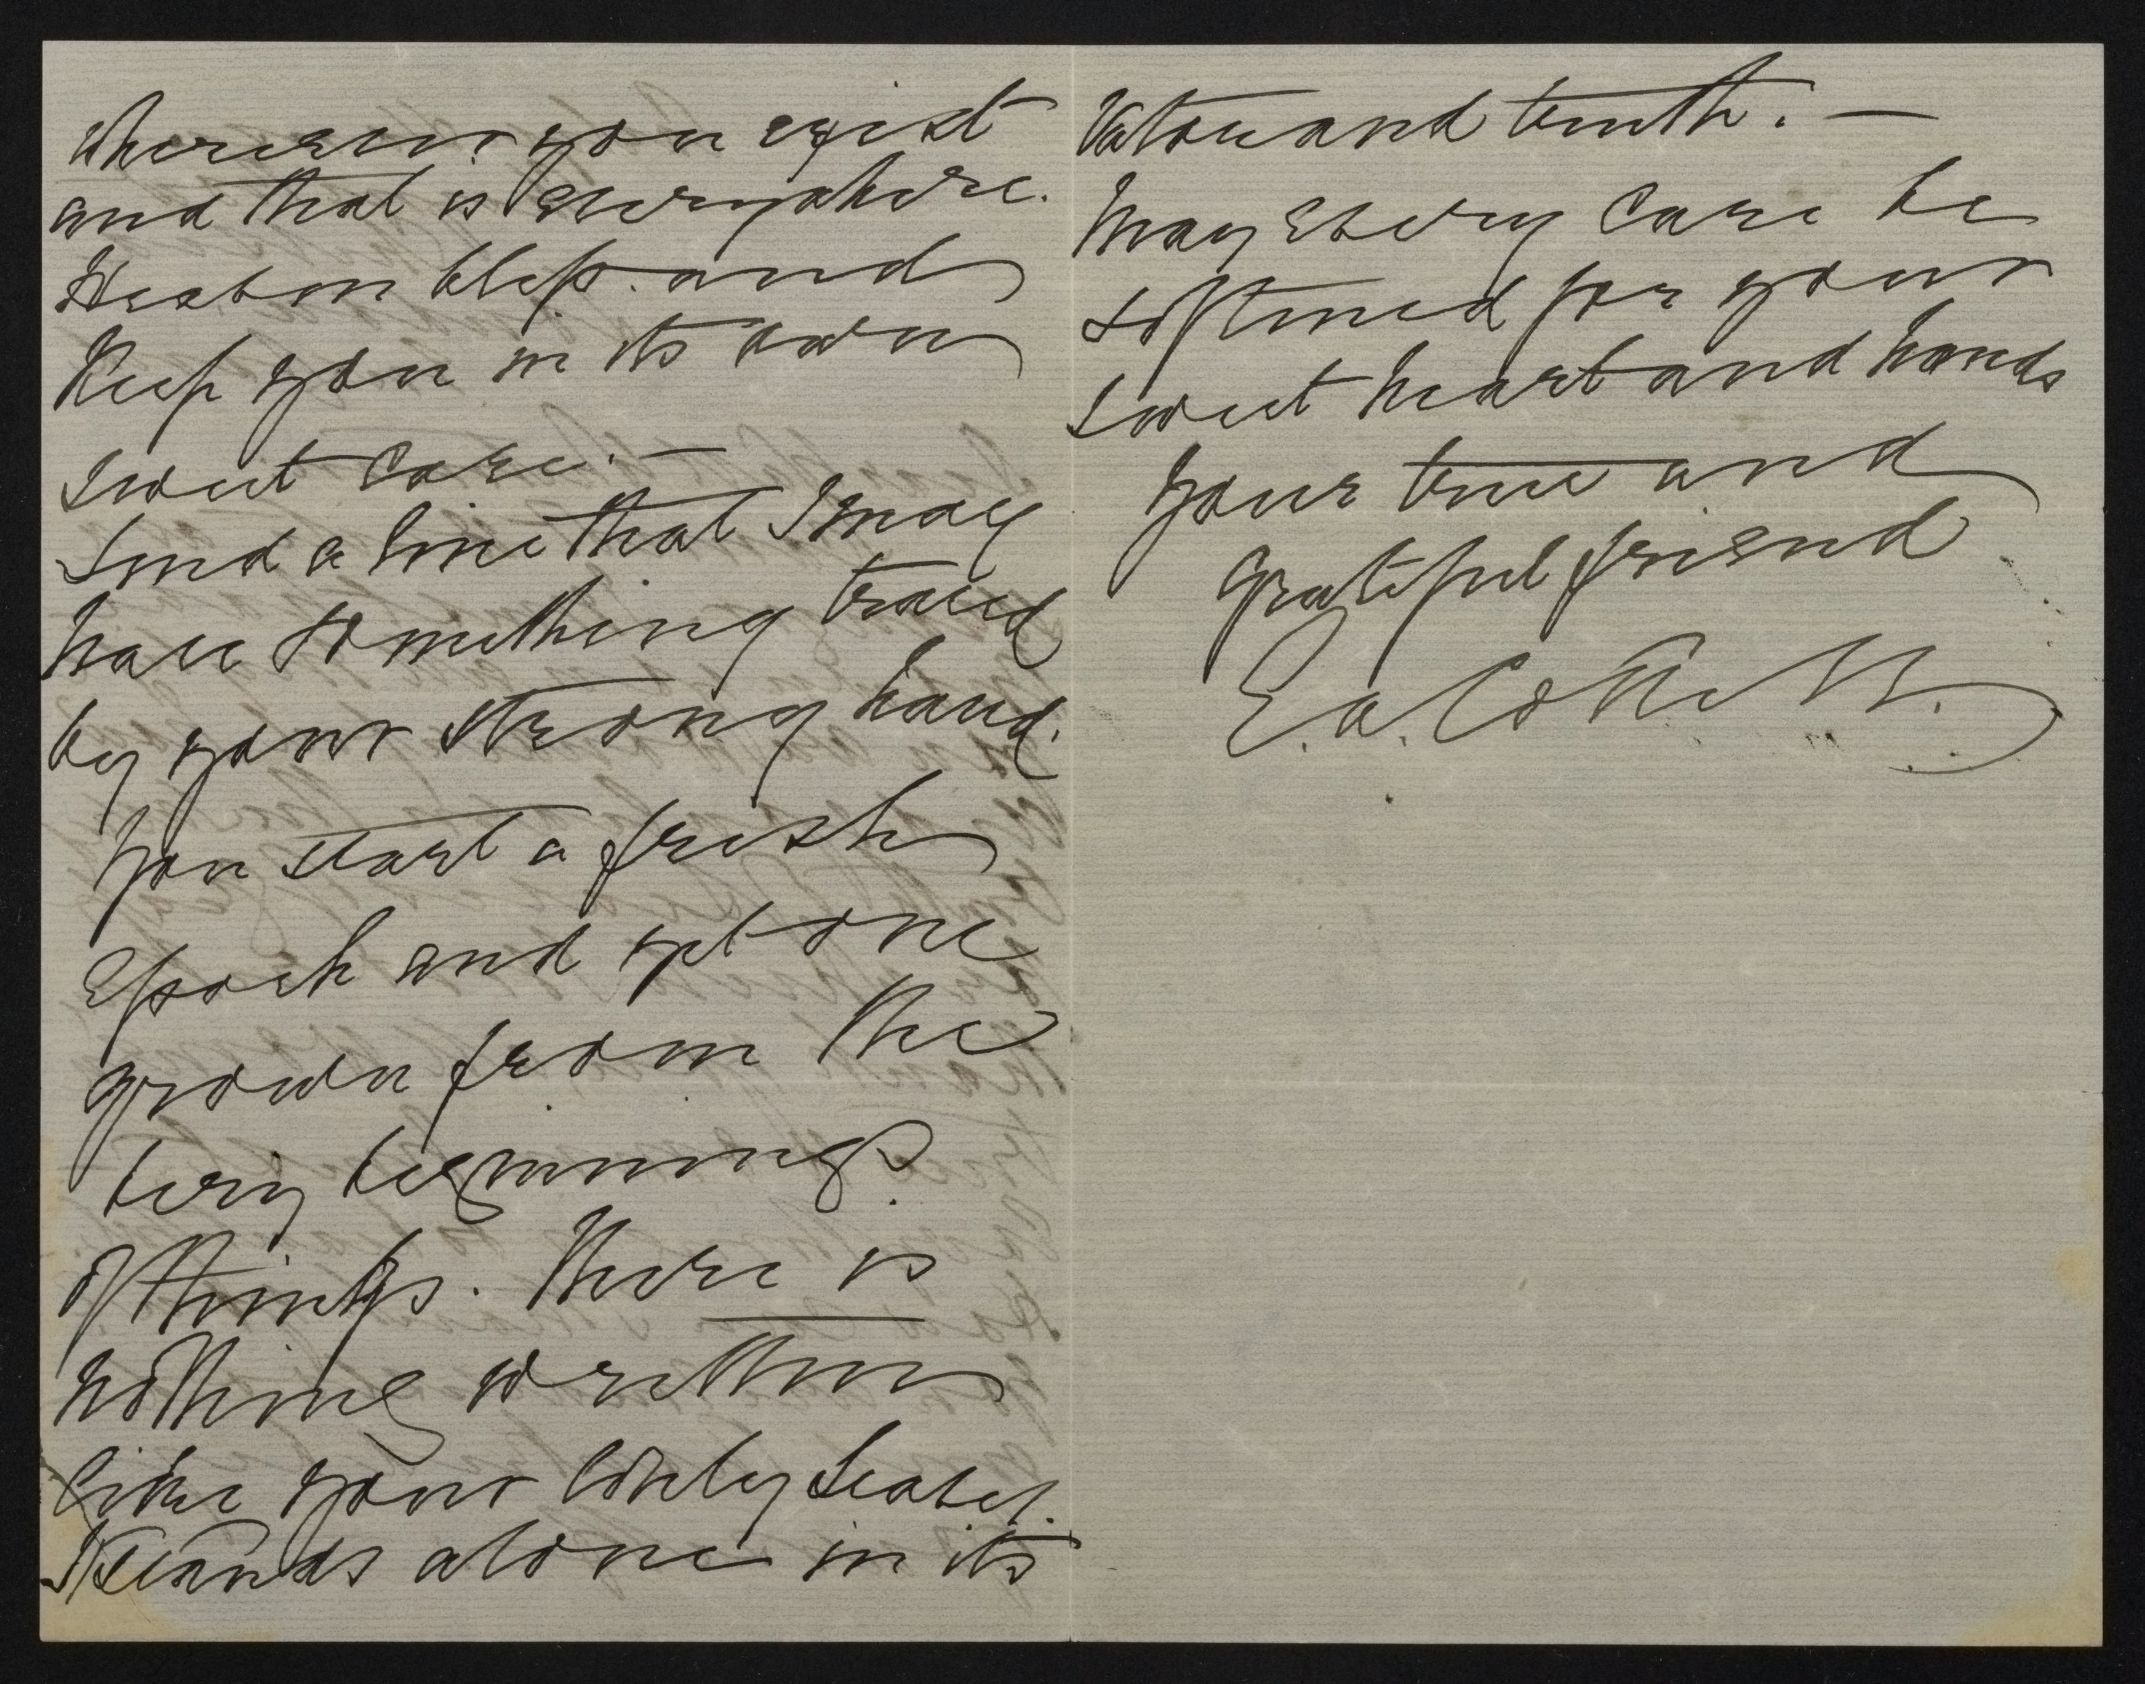 wherever you exist
and that is everywhere.
Heaven bless and
Keep you in its own
sweet care. —
Send a line that I may
have something traced
by your strong hand.
You start a fresh
Epoch and yet one
grown from the
very beginnings
of things. There is
nothing written
like your lovely Leaves.
It stands alone in its
Valor and truth. —
May every care be
softened for your
sweet heart and hands
Your true and
grateful friend
E. A.